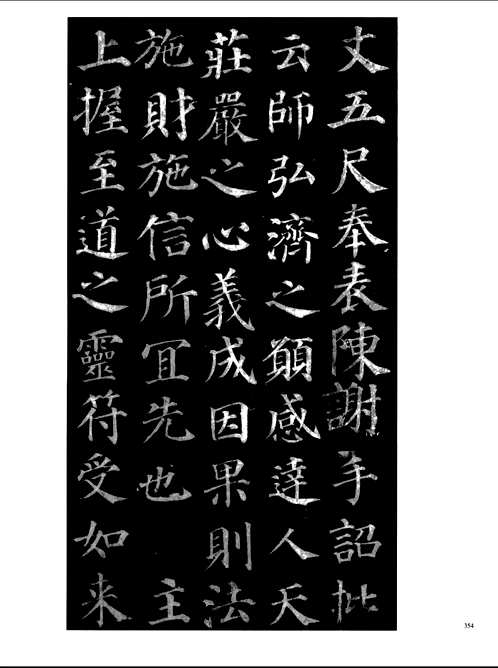 丈五尺奉表陳謝手詔批
云師弘濟之願感達人天
莊嚴之心義成因果則法
施財施信所宜先也 主
上握至道之靈符受如来
354